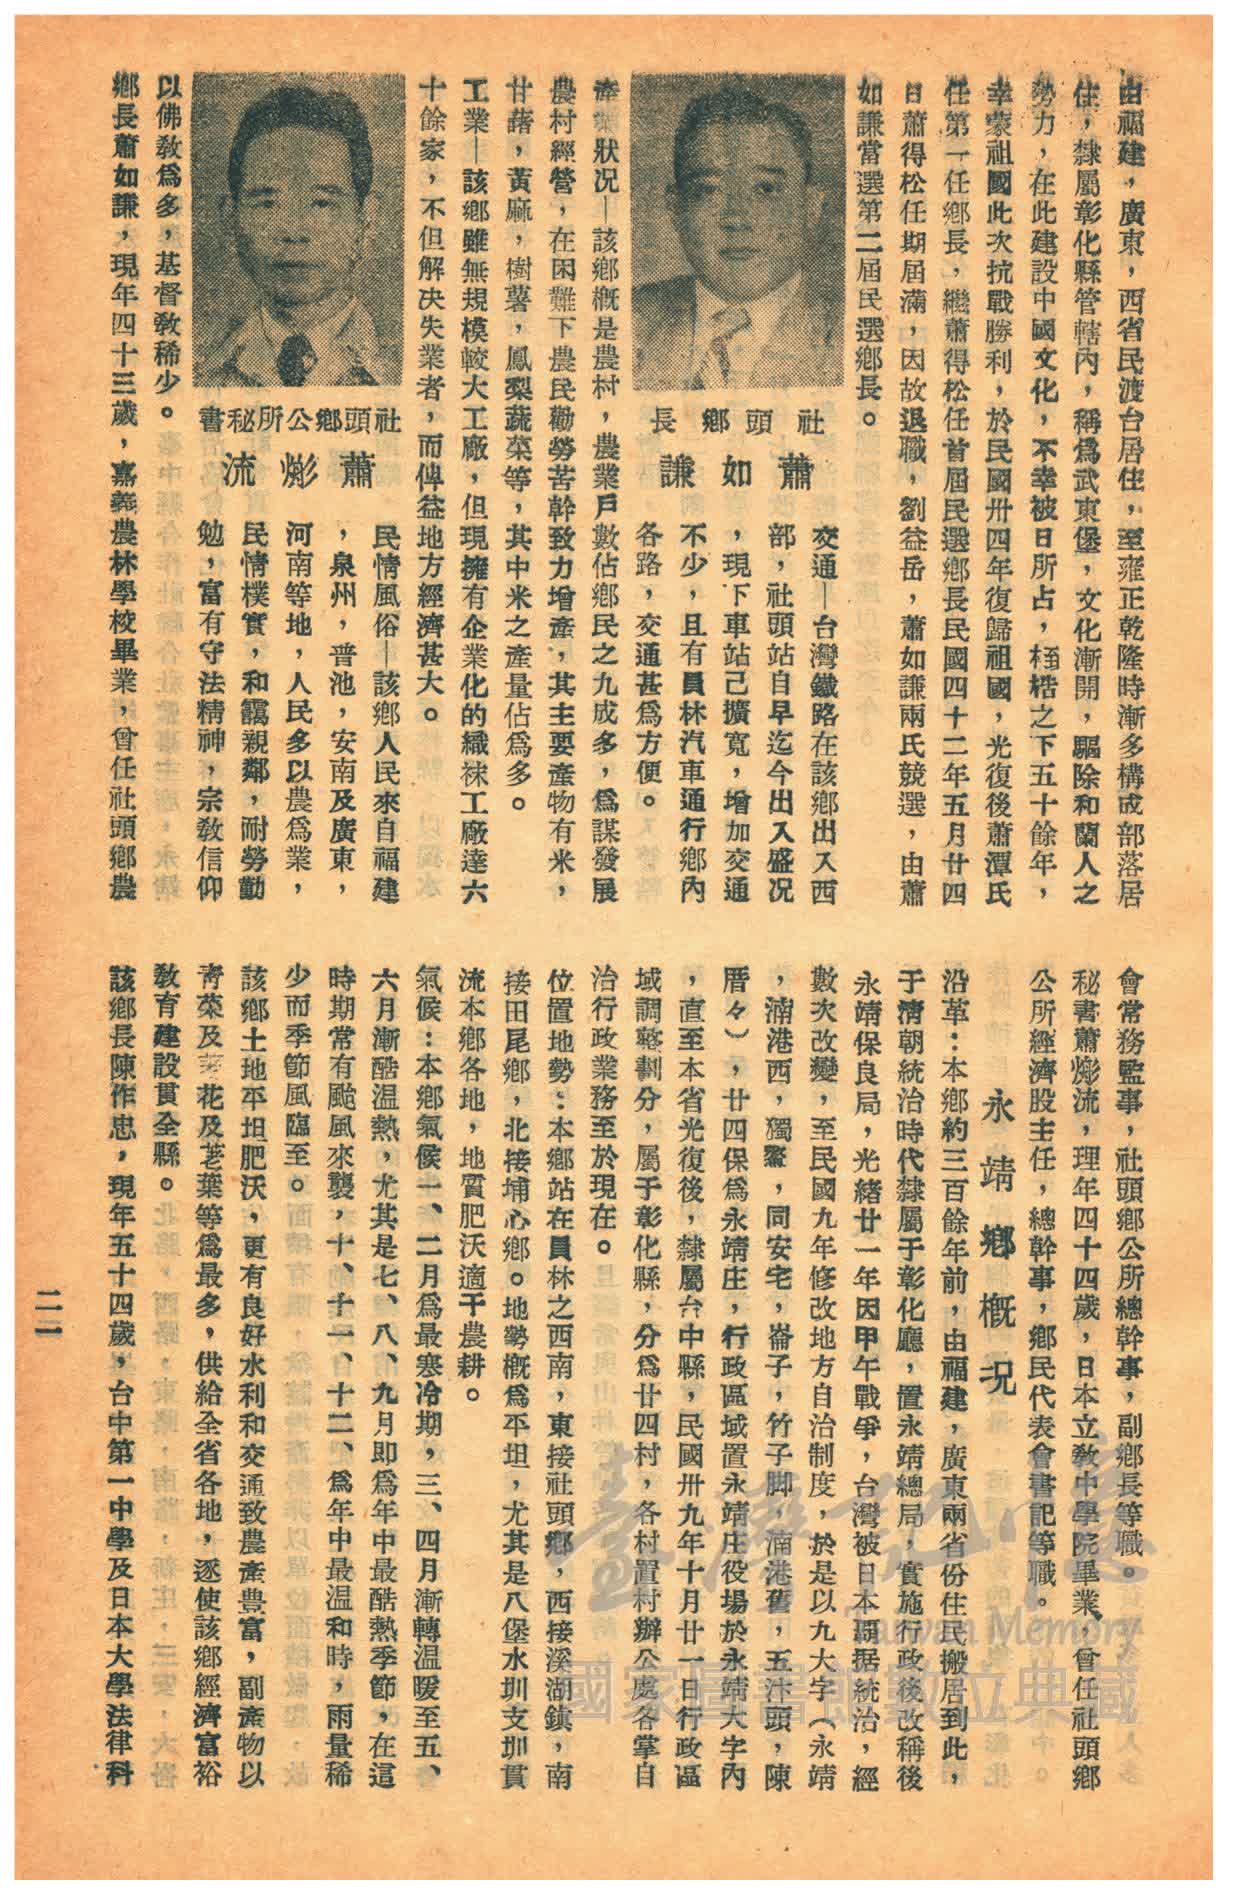 由福建，廣東，西省民渡台居住，至雍正乾隆時漸多構成部落居
住，隸屬彰化縣管轄內，稱爲武東堡，文化漸開，驅除和蘭人之
勢力，在此建設中國文化，不幸被日所占，桎梏之下五十餘年，
幸蒙祖國此次抗戰勝利，於民國卅四年復歸祖國，光復後蕭潭氏
任第一任鄉長，繼蕭得松任首屆民選鄉長民國四十二年五月廿四
日蕭得松任期屆滿，因故退職，劉益岳，蕭如謙兩氏競選，由蕭
如謙當選第二屆民選鄉長。
社頭鄉長
蕭如謙
交通—台灣鐵路在該鄉出入西
部，社頭站自早迄今出入盛况
，現下車站己擴寬，增加交通
不少，且有員林汽車通行鄉內
各路，交通甚爲方便。
產業狀况—該鄉概是農村，農業戶數佔鄉民之九成多，爲謀發展
農村經營，在困難下農民勸勞苦幹致力增產，其主要產物有米，
甘藷，黃麻，樹薯，鳳梨蔬菜等，其中米之產量佔爲多。
工業—該鄉雖無規模較大工廠，但現擁有企業化的織袜工廠達六
十餘家，不但解決失業者，而俾益地方經濟甚大。
社頭鄉公所秘書
蕭熌流
民情風俗—該鄉人民來自福建
，泉州，晋池，安南及廣東，
河南等地，人民多以農爲業，
民情樸實，和靄親鄰，耐勞勤
勉，富有守法精神，宗敎信仰
以佛敎爲多，基督敎稀少。
鄉長蕭如謙，現年四十三歲，嘉義農林學校畢業，曾任社頭鄉農
會常務監事，社頭鄉公所總幹事，副鄉長等職。
秘書蕭熌流，理年四十四歲，日本立敎中學院畢業、曾任社頭鄉
公所經濟股主任，總幹事，鄉民代表會書記等職。
永靖鄉概况
沿革：本鄉約三百餘年前，由福建，廣東兩省份住民搬居到此，
于淸朝統治時代隸屬于彰化廳，置永靖總局，實施行政後改稱後
永靖保良局，光緒廿一年因甲午戰爭，台灣被日本周据統治，經
數次改變，至民國九年修改地方自治制度，於是以九大字（永靖
，湳港西，獨鰲，同安宅，崙子，竹子脚，湳港舊，五汴頭，陳
厝々），廿四保爲永靖庄，行政區域置永靖庄役場於永靖大字內
，直至本省光復後，隸屬台中縣，民國卅九年十月廿一日行政區
域調整劃分，屬于彰化縣，分爲廿四村，各村置村辦公處各掌自
治行政業務至於現在。
位置地勢：本鄉站在員林之西南，東接社頭鄉，西接溪湖鎮，南
接田尾鄉，北接埔心鄉。地勢概爲平坦，尤其是八堡水圳支圳貫
流本鄉各地，地質肥沃適于農耕。
氣候：本鄉氣候一、二月爲最寒冷期，三、四月漸轉温暖至五、
六月漸酷温熱，尤其是七、八、九月即爲年中最酷熱季節，在這
時期常有颱風來襲，十、十一、十二、爲年中最温和時，雨量稀
少而季節風臨至。
該鄉土地平坦肥沃，更有良好水利和交通致農產豊富，副產物以
青菜及花及荖葉等爲最多，供給全省各地，逐使該鄉經濟富裕
敎育建設貫全縣。
該鄉長陳作忠，現年五十四歲，台中第一中學及日本大學法律科
二一
臺灣記憶
Taiwan Memory
國家圖書館數位典藏